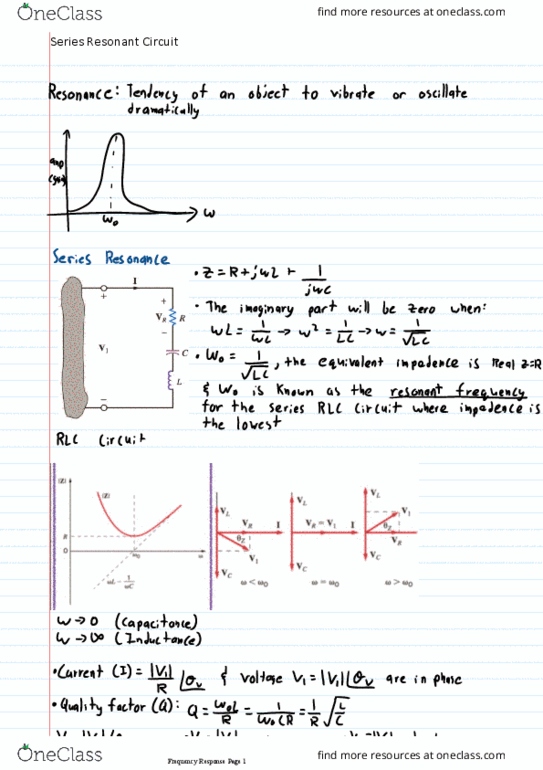 OneClass
find more resources at oneclass.com
Series Resonant Circuit
Resonance: Tendency of an object to vibrate or oscillate
dramatically
amp
ω
ω₀
Series Resonance
• Z = R + jωL + 1/jωC
• The imaginary part will be zero when:
ωL = 1/ωC → ω² = 1/LC → ω = 1/√LC
• ω₀ = 1/√LC, the equivalent impedence is real Z=R
& ω₀ is known as the resonant frequency
for the series RLC circuit where impedence is
the lowest
I
+ +
V_R R
−
V₁
C
L
−
RLC Circuit
|Z|
|Z|
R
0
ω₀
ω
ωL − 1/ωC
V_L V_R I θ_Z V₁ V_C ω < ω₀
V_L V_R = V₁ I V_C ω = ω₀
V_L V₁ θ_Z V_R I V_C ω > ω₀
ω → 0 (Capacitance)
ω → ∞ (Inductance)
• Current (I) = |V₁|/R ∠θᵥ & voltage V₁ = |V₁|∠θᵥ are in phase
• Quality factor (Q): Q = ω₀L/R = 1/ω₀CR = 1/R √L/C
OneClass
Frequency Response Page 1
find more resources at oneclass.com